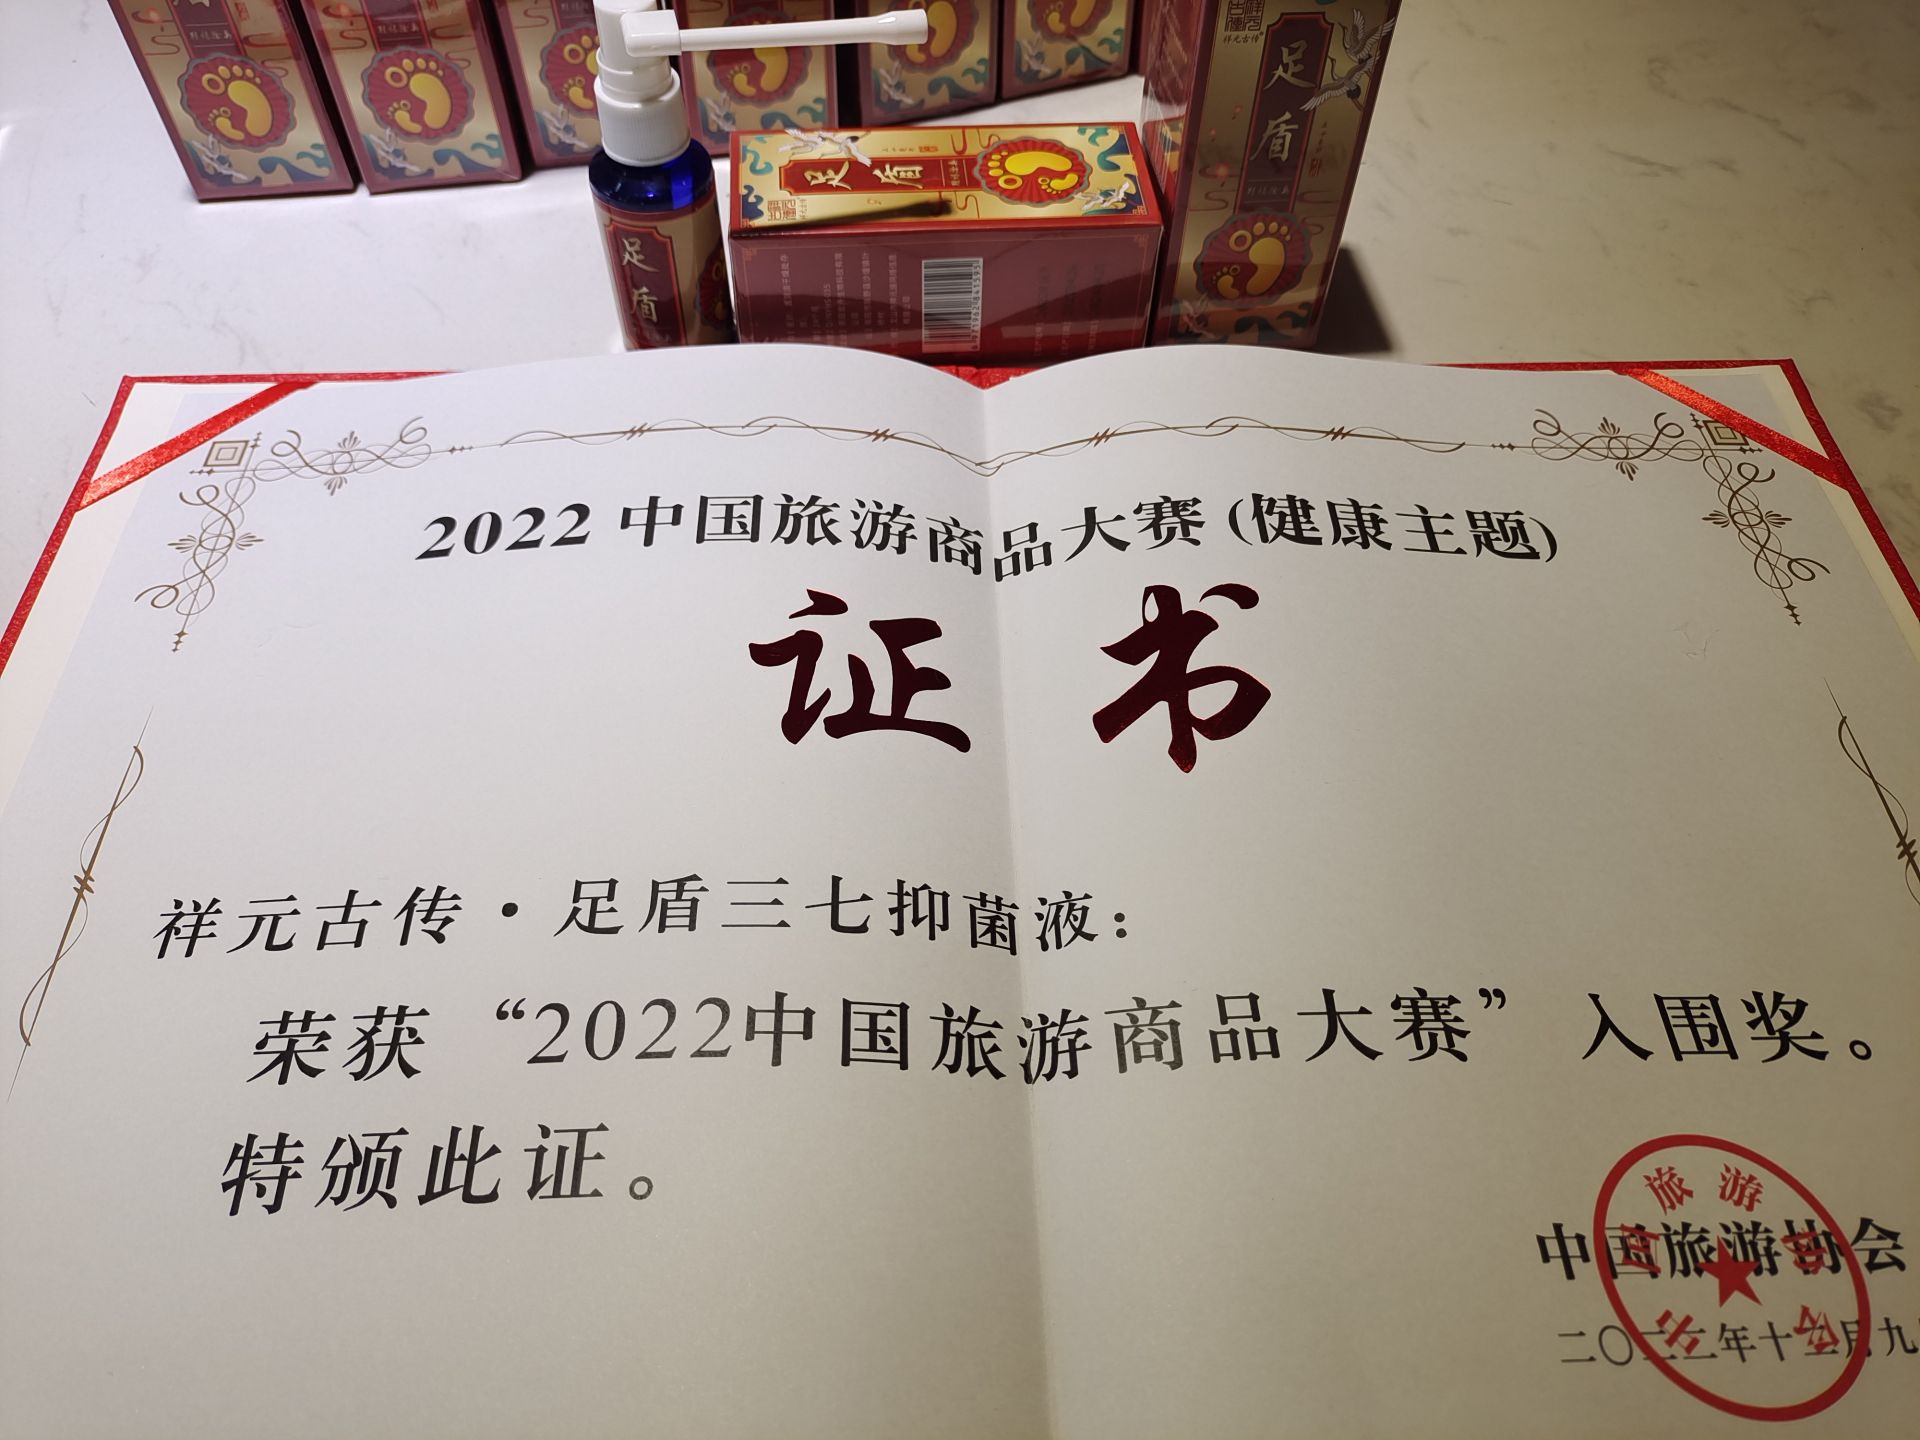 足盾
祥元古传
足盾
足盾
足盾
6971962841593
2022中国旅游商品大赛(健康主题)
证书
祥元古传·足盾三七抑菌液：
荣获“2022中国旅游商品大赛”入围奖。
特颁此证。
中国旅游协会
二〇二二年十二月九